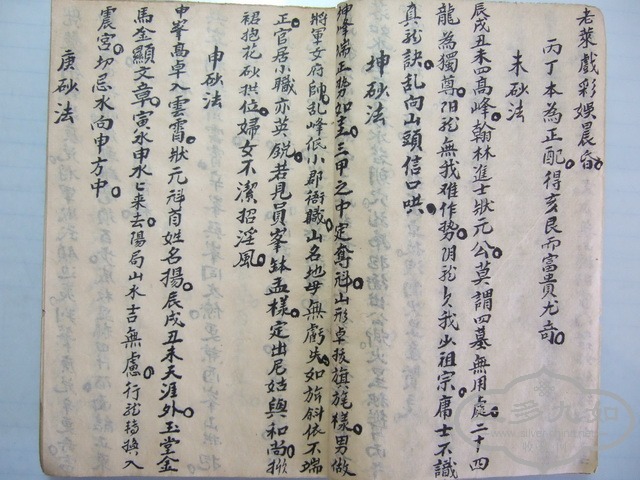 老萊戲彩娛晨昏
丙丁本為正配得亥艮而富貴尤奇
未砂法
辰戌丑未四高峰翰林進士狀元公莫謂四墓無用處二十四
龍為獨尊陽龍無我难作势阴龍欠我少祖宗庸士不識
真龍訣乱向山頭信口哄
坤砂法
坤峰端正势如圭三甲之中定奪科山形卓拔旗旄樣男做
將軍女府帥乱峰低小郡衙職山名地母無虧失如旂斜依不端
正官居小職亦英銳若見員峯鉢盂樣定出尼姑與和尚掀
裙抱花砂拱位婦女不潔招淫風
申砂法
申峯高卓入雲霄狀元科首姓名揚辰戌丑未天涯外玉堂金
馬金顯文章寅水申水上來去陽局山水吉無慮行龍轉換入
震宮切忌水向申方中
庚砂法